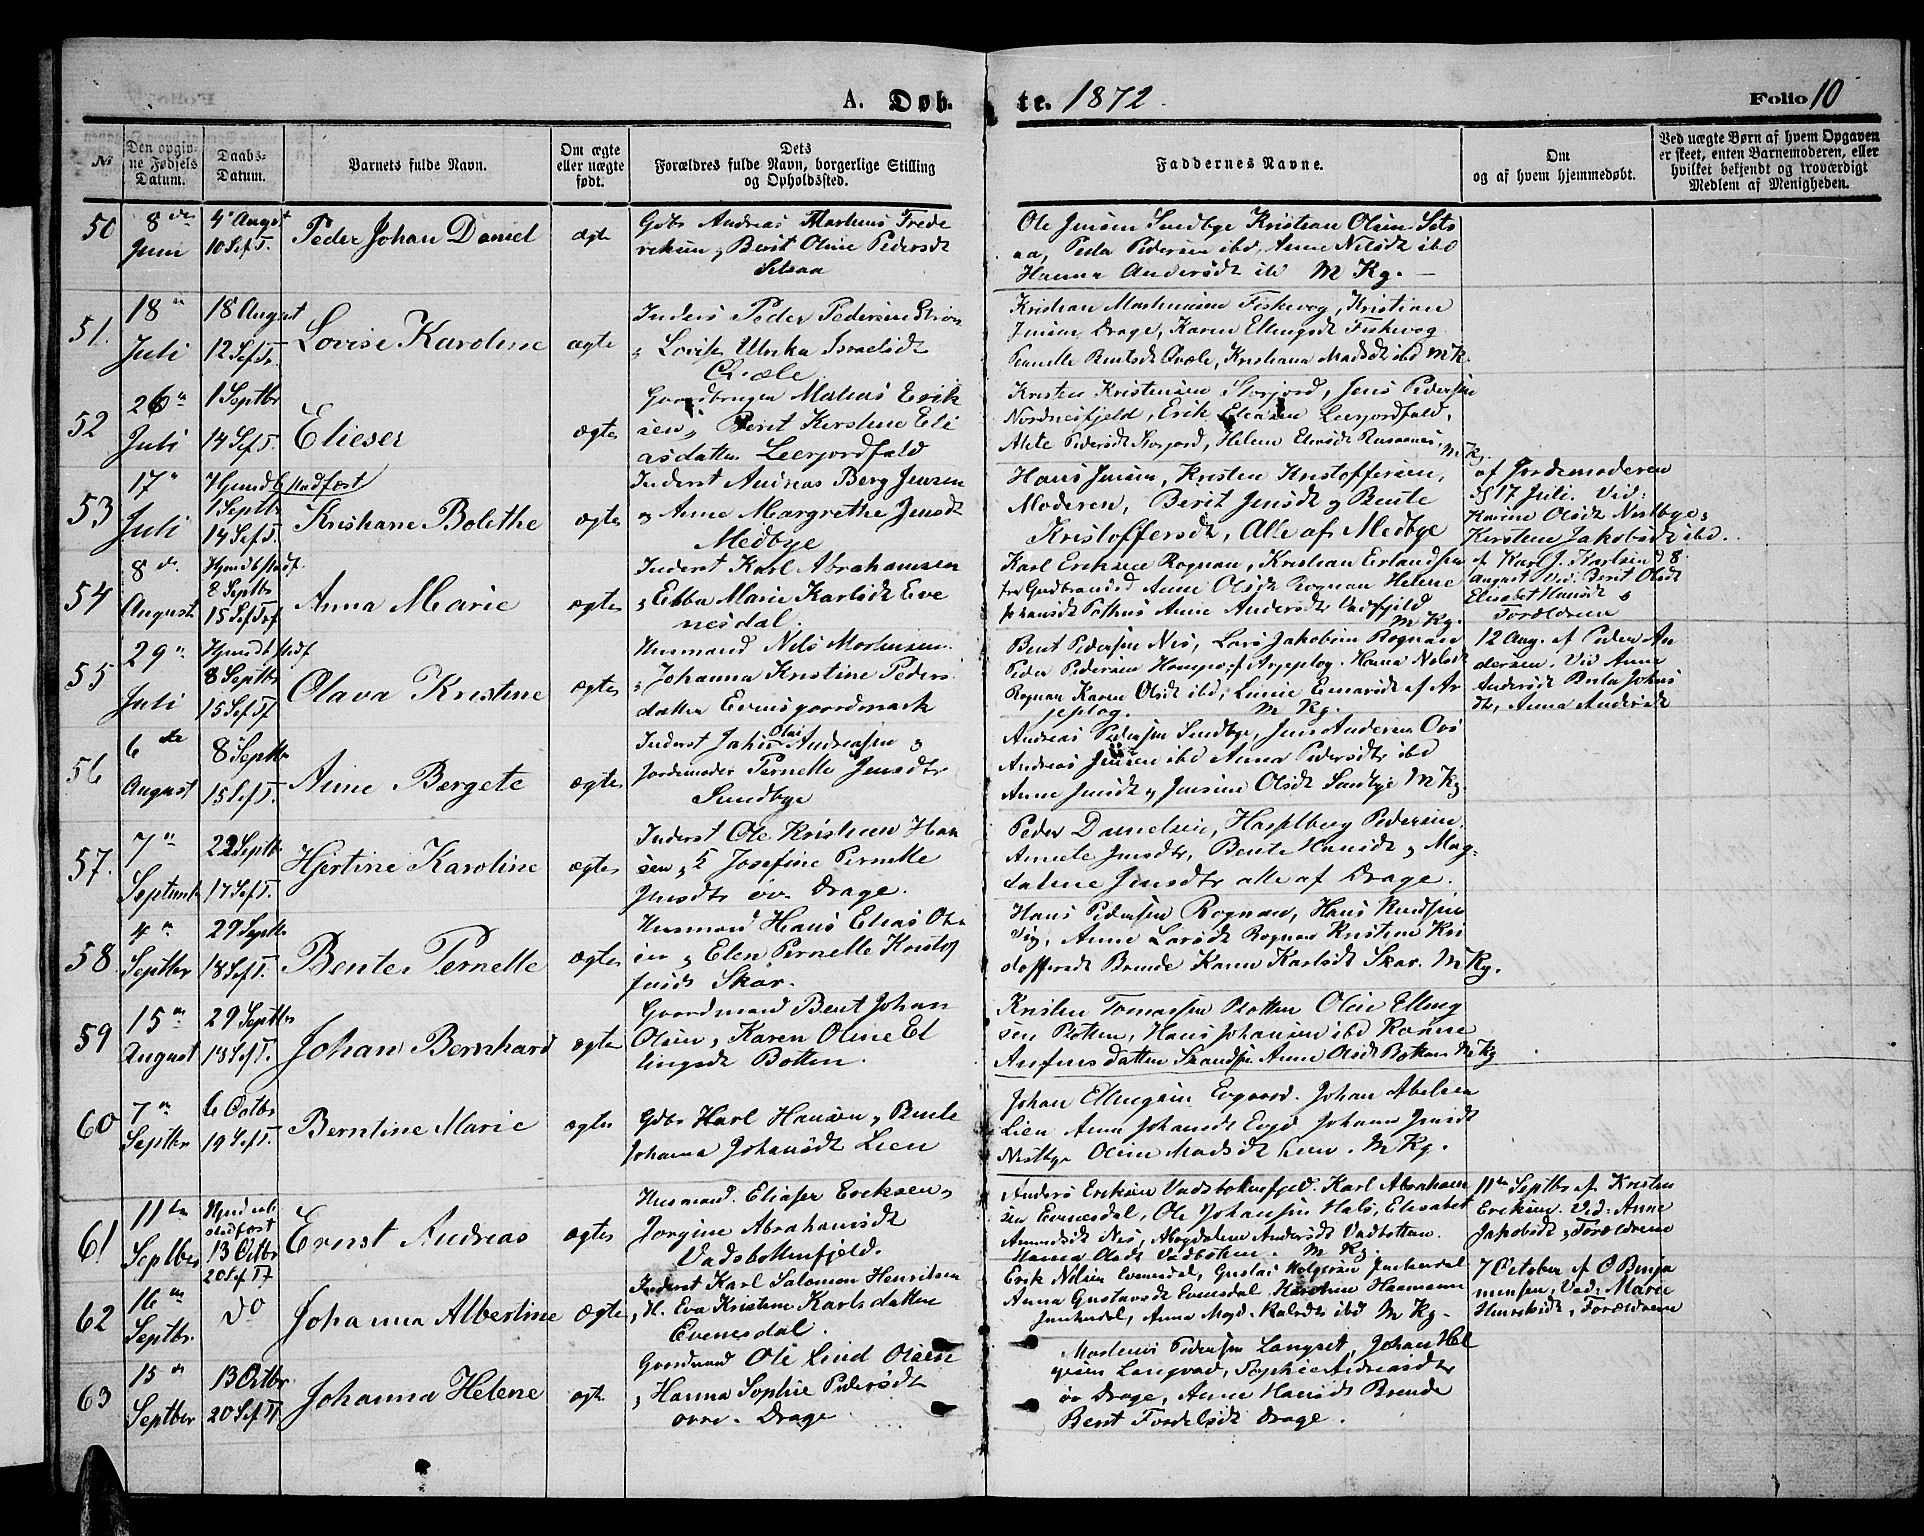 A. Døb-
te. 1872.
Folio 10
№
Den opgiv-
ne Fødsels
Datum.
Daabs-
Datum.
Barnets fulde Navn.
Om ægte
eller uægte
født.
Dets
Forældres fulde Navn, borgerlige Stilling
og Opholdssted.
Faddernes Navne.
Om
og af hvem hjemmedøbt.
Ved uægte Børn af hvem Opgaven
er skeet, enten Barnemoderen, eller
hvilket bekjendt og troværdigt
Medlem af Menigheden.
50
8de
Juni
4 August
10 Sef T.
Peder Johan Daniel
ægte
Gdbr Andreas Martinus Frede
riksen og Berit Oline Pedersdt
Setsaa
Ole Jensen Sundbye Kristian Olsen Sets
aa, Peder Pedersen ibd, Anne Nilsdt ibd
Hanna Andersdt ib M Kg.
51.
18
Juli
18 August
12 Sef Tr.
Lovise Karoline
ægte
Inders Peder Pedersen
og Lovise Ulrika Israelsdt
Kristian Martinusen Fiskevog, Kristian
Jensen Drage, Karen Ellingsdt Fiskevog
Pernelle Bentsdt Qvæle, Kristiana Madsdt ibd M K.
52
26
Juli
1 Septbr
14 Sef T.
Elieser
ægte
Gaardbruger Matias Erik
sen og Berit Kirstine Eli
asdatter Leerjordfald
Kristen Kristensen Storjord, Jens Pedersen
Nordnesfjeld, Erik Eliasen Leerjordfald,
Pedersdt Storjord, Helene Eliasdt M Kg.
53
17
Juli
Hjemdb stadfæst
1 Septbr
14 Sef T.
Kristiane Bolethe
ægte
Inderst Andreas Berg Jensen
og Anne Margrethe Jensdt
Medbye
Hans Jensen, Kristen Kristoffersen,
Moderen, Berit Jensdt og Bente
Kristoffersdt, Alle af Medbye
af Jordemoderen
17 Juli. Vid:
Karine Olsdt Nestbye og
Kirsten Jakobsdt ibd.
54
8de
August
Hjemdb stadf.
8 Septbr
15 Sef T.
Anna Marie
ægte
Inderst Karl Abrahamsen
og Ebba Marie Karlsdt Eve
nesdal.
Karl Eriksen Rognan, Kristian Erlandsen
Anne Olsdt Rognan Helene
Anne Andersdt Vasfjeld
M Kg.
af Karl J. Karlsen d 8
August Vid. Berit Olsdt
Elisabet Hansdt og
Forældrene
55
29
Juli
Hjemdb stadf
8 Septbr
15 Sef T.
Olava Kristine
ægte
Husmand Nils Mortensen
og Johanna Kristine Peders
datter Evensgaardmark
Bent Pedersen Nes, Lars Jakobsen Rognan
Peder Pedersen af Arjeplog. Hanna Nilsdt
Rognan Karen Olsdt ibd, Einarsdt af Ar
jeplog. M Kg.
12 Aug. af Peder An
dersen. Vid Anne
Andersdt Johns
dt, Anna Andersdt
56
6te
August
8 Septbr
15 Sef T.
Anne Bergete
ægte
Inderst Johan Olai Andreassen og
Jordemoder Pernelle Jensdtr
Sundbye
Andreas Pedersen Sundbye, Jens Andersen
Andreas Jensen ibd Anna Pedersdtr ibd
Anne Jensdt og Jensine Olsdt Sundbye M Kg.
57.
7
Septemb
22 Septbr
17 Sef T.
Hjertine Karoline
ægte
Inderst Ole Kristian Han
sen og Josefine Pernelle
Jensdtr øv Drage.
Peder Danielsen, Hasselberg Pedersen,
Annete Jensdtr, Bente Hansdt og Mag-
dalene Jensdtr alle af Drage.
58
4
Septbr
29 Septbr
18 Sef T.
Bente Pernelle
ægte
Husmand Hans Elias Ol
sen og Elen Pernelle Kristof
fersdt Skar.
Hans Pedersen Rognan, Hans Knudsen
Anne Larsdt Rognan Kristine Kri
stoffersdt Brende Karen Karlsdt Skar. M Kg.
59
15
August
29 Septbr
18 Sef T.
Johan Bernhard
ægte
Gaardmand Bent Johan
Olsen og Karen Oline El
lingsdt Botten.
Kristen Tomassen Botten Ole Elling
sen Botten, Hans Johansen ibd
Anfinsdatter Anne Olsdt Botten M Kg
60
7
Septbr
6 Octbr
19 Sef T.
Berntine Marie
ægte
Gdbr Karl Hansen og Bente
Johanna Johansdt Lien
Johan Ellingsen Evgaard. Johan Abelsen
Lien Anna Johansdt Johanna Jensdt
Nestbye Oline Madsdt Lien. M Kg.
61
11te
Septber
Hjemdb
stadfæst
13 Octbr
20 Sef T
Ernst Andreas
ægte
Husmand. Eliaser Eriksen og
Jorgine Abrahamsdt
Vadsbottenfjeld.
Anders Eriksen Vadsbottenfjeld. Karl Abraham
sen Evenesdal, Ole Johansen Hals, Elisabet
Amundsdt Nes, Magdalene Andersdt Vadbotten
Hanna Olsdt Vadbotten. M Kg.
11te Septbr af Kristen
Eriksen. Vid. Anne
Jakobsdt og Forældrene
62
16
Septbr
do
Johanna Albertine
ægte
Inderst Karl Salomon Henriksen
og H. Eva Kristine Karlsdatter
Evenesdal.
Erik Nilsen Evenesdal, Gustav Holgersen Junkerdal
Anna Gustavsdt Evenesdal Karoline Haamann
Junkerdal, Anna ibd M Kg.
7 October af O Benja
minsen, Vid: Marie
Henriksdt, Forældrene
63
15de
Septber
13 Octbr
20 Sef T
Johanna Helene
ægte
Gaardmand Ole Lind Olsen
og Hanna Sophie Pedersdt
øvre Drage
Martinus Pedersen Langset, Johan Hel
gesen Langvad, Sophie Andreasdtr
øv Drage, Anne Hansdt Brende
Berit Drage.